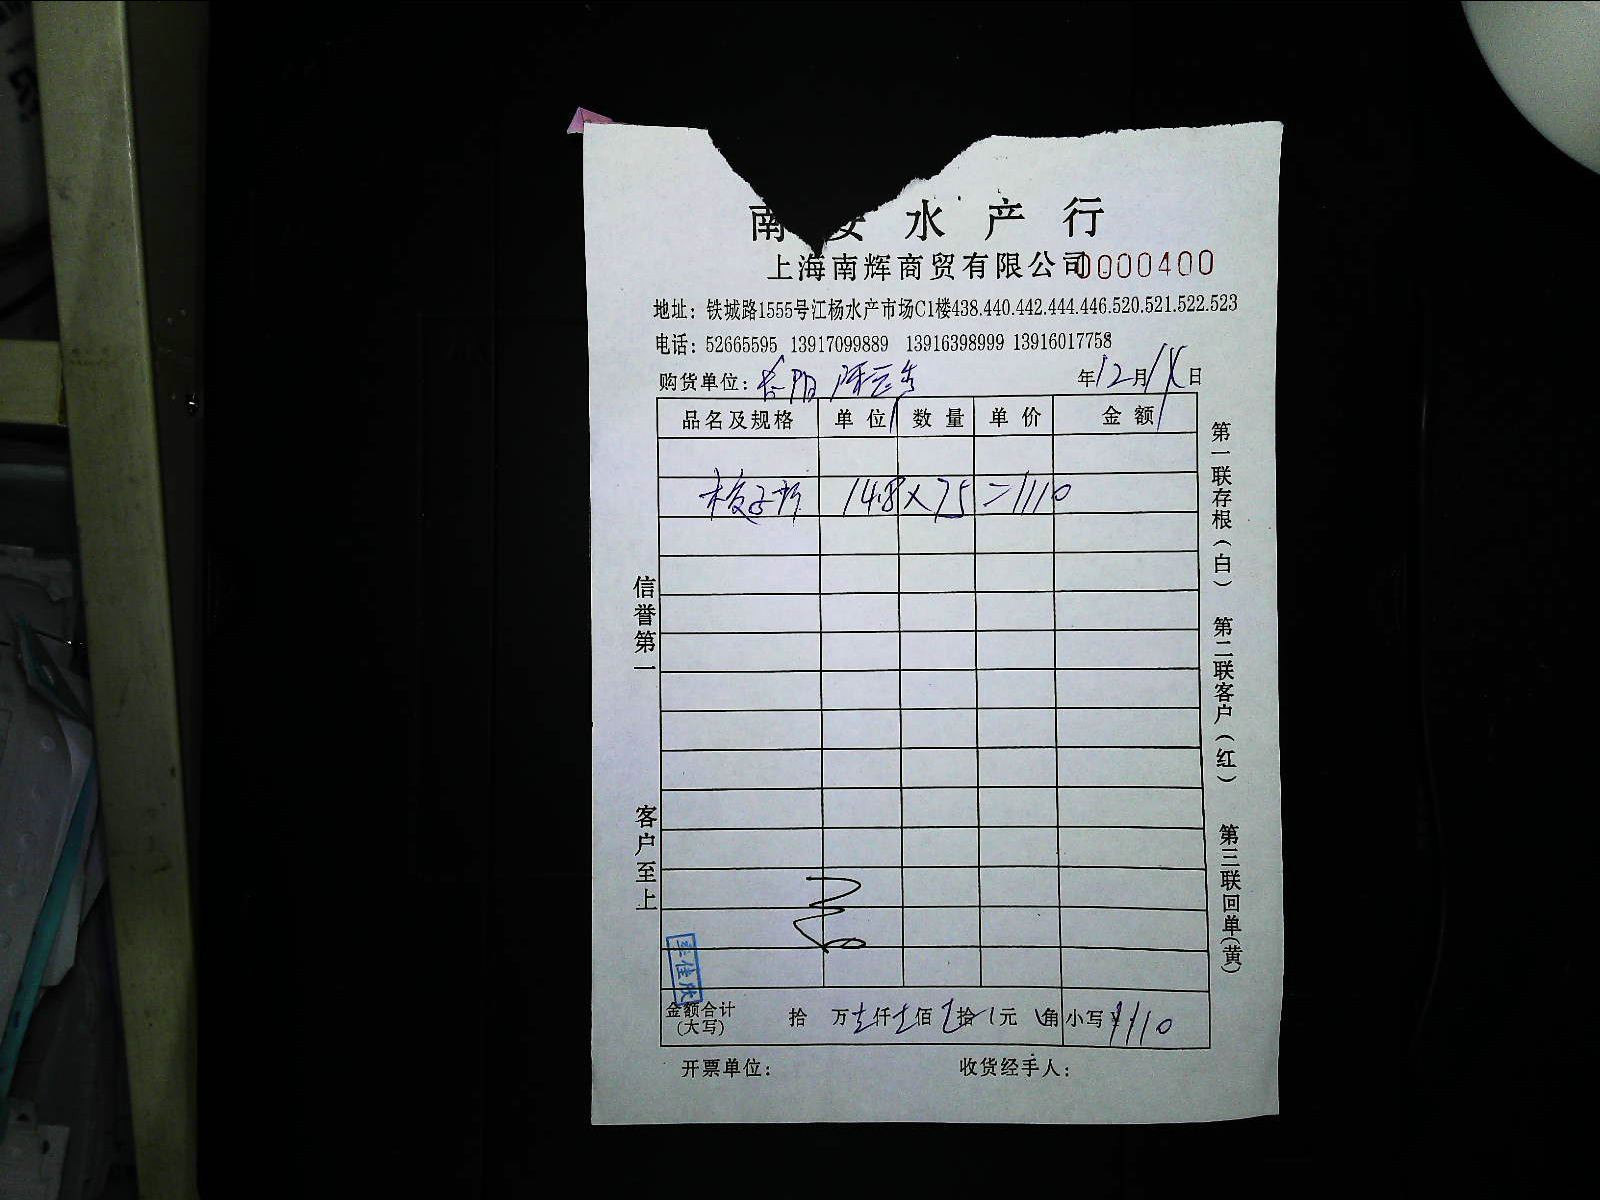 南 水 产 行
上海南辉商贸有限公司 0000400
地址：铁城路1555号江杨水产市场C1楼438.440.442.444.446.520.521.522.523
电话：52665595 13917099889 13916398999 13916017758
购货单位： 年12月 日
品名及规格 单位 数量 单价 金额
14.8×75=1110
信誉第一
客户至上
第一联存根（白） 第二联客户（红） 第三联回单（黄）
金额合计（大写） 拾 万 仟 佰 拾 元 角 小写¥1110
开票单位： 收货经手人：